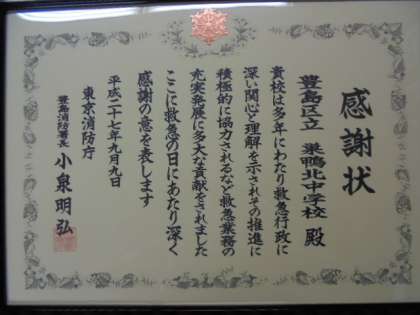 感謝状
豊島区立 巣鴨北中学校 殿
貴校は多年にわたり救急行政に
深い関心と理解を示されその推進に
積極的に協力されるなど救急業務の
充実発展に多大な貢献をされました
ここに救急の日にあたり深く
感謝の意を表します
平成二十七年九月九日
東京消防庁
豊島消防署長 小泉明弘